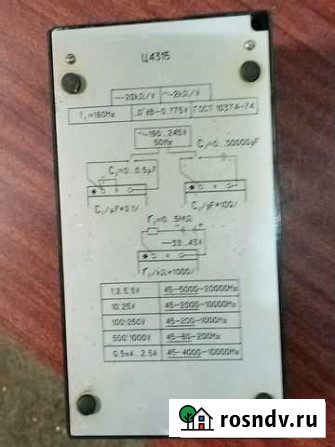 Ц4315
—20kΩ/V ~2kΩ/V
f₁=160Hz „0"dB-0.775V ГОСТ 10374-74
~190...245V
50Hz
Cₓ=0...0.5µF Cₓ=0...30000pF
Cₓ/µF*0.1/ Cₓ/pF*100/
rₓ=0...5MΩ
33...43V
rₓ/kΩ*1000/
1;2.5;5V 45-5000-20000Hz
10;25V 45-2000-10000Hz
100;250V 45-200-1000Hz
500;1000V 45-60-200Hz
0.5mA...2.5A 45-4000-10000Hz
rosndv.ru